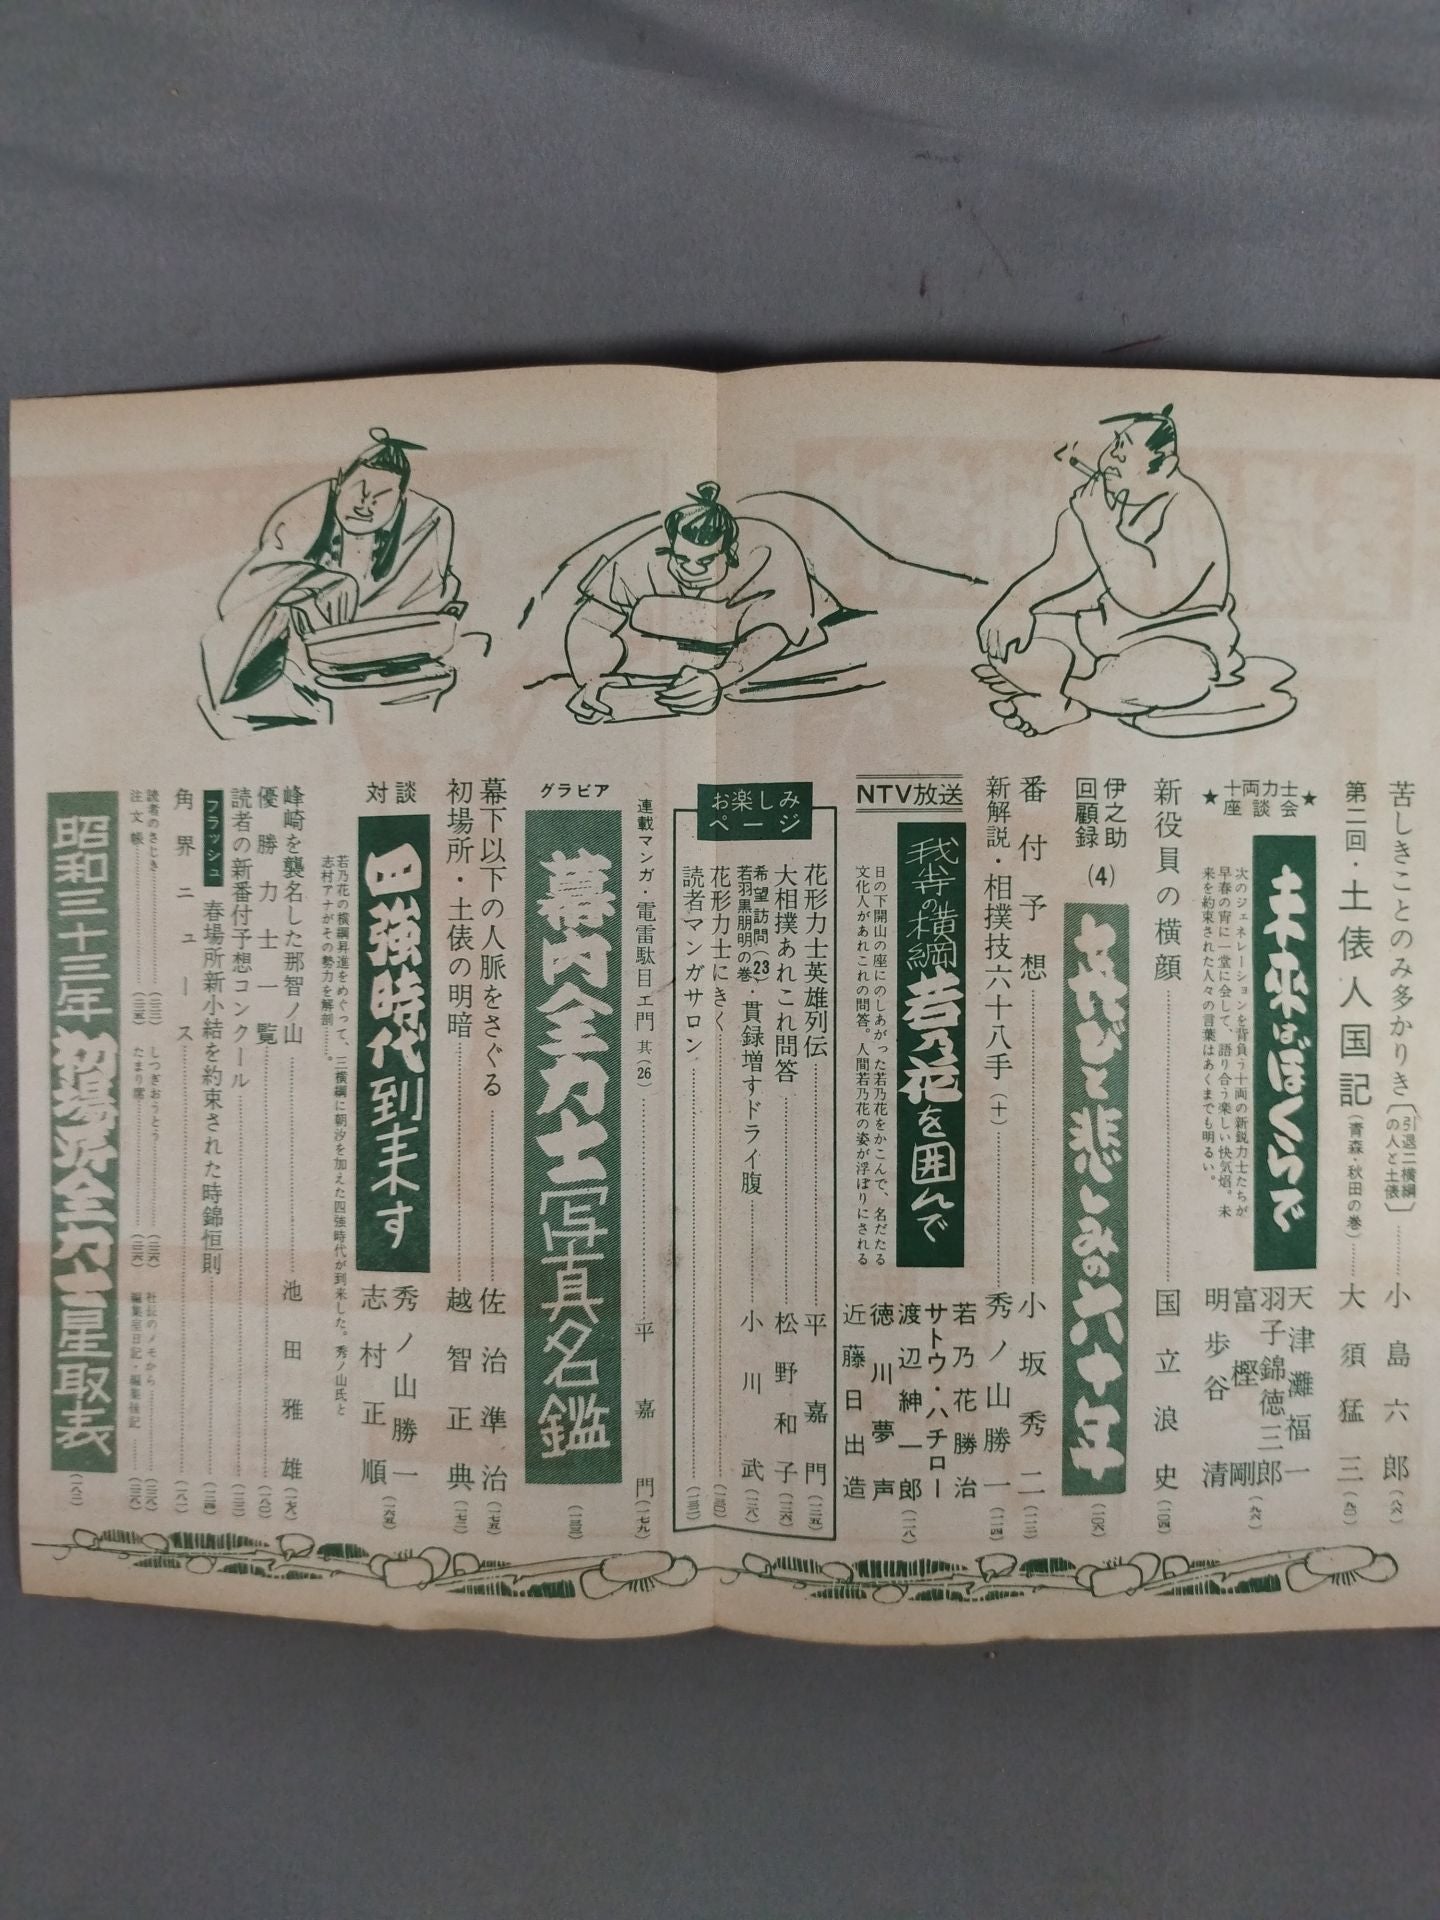 苦しきことのみ多かりき〔引退二横綱の人と土俵〕……小島六郎(八六)
第二回・土俵人国記(青森・秋田の巻)……大須猛三(九〇)
★十両力士座談会★
未来はぼくらで
次のジェネレーションを背負う十両の新鋭力士たちが
早春の宵に一堂に会して、語り合う楽しい快気焰。未
来を約束された人々の言葉はあくまでも明るい。
天津灘福一
羽子錦徳三郎
富樫剛
明歩谷清
(九六)
新役員の横顔……国立浪史(一〇四)
伊之助回顧録(4)
よろこびと悲しみの六十年
(一〇六)
番付予想……小坂秀二(一一二)
新解説・相撲技六十八手(十)……秀ノ山勝一(一一四)
NTV放送
我等の横綱若乃花を囲んで
日の下開山の座にのしあがった若乃花をかこんで、名だたる
文化人があれこれの問答。人間若乃花の姿が浮ぼりにされる
若乃花勝治
サトウ・ハチロー
渡辺紳一郎
徳川夢声
近藤日出造
(一一八)
お楽しみページ
花形力士英雄列伝……平嘉門(一三五)
大相撲あれこれ問答……松野和子(一三六)
希望訪問(23)・貫録増すドライ腹……小川武(一三八)
若羽黒朋明の巻
花形力士にきく……(一三〇)
読者マンガサロン……(一三二)
連載マンガ・電雷駄目エ門 其(26)……平嘉門(一七九)
グラビア
幕内全力士写真名鑑
(一三三)
幕下以下の人脈をさぐる……佐治準治(一七五)
初場所・土俵の明暗……越智正典(一七二)
対談
四強時代到来す
若乃花の横綱昇進をめぐって、三横綱に朝汐を加えた四強時代が到来した。秀ノ山氏と
志村アナがその勢力を解剖……。
秀ノ山勝一
志村正順
(一六五)
峰崎を襲名した那智ノ山……池田雅雄(一七八)
優勝力士一覧……(一八〇)
読者の新番付予想コンクール……
フラッシュ
春場所新小結を約束された時錦恒則……
角界ニュース……(一八一)
読者のさじき……
しつぎおうとう……
社長のノモから……
注文帳……
たまり席……
編集室日記・編集後記……
昭和三十三年 初場所全力士星取表
(一八二)